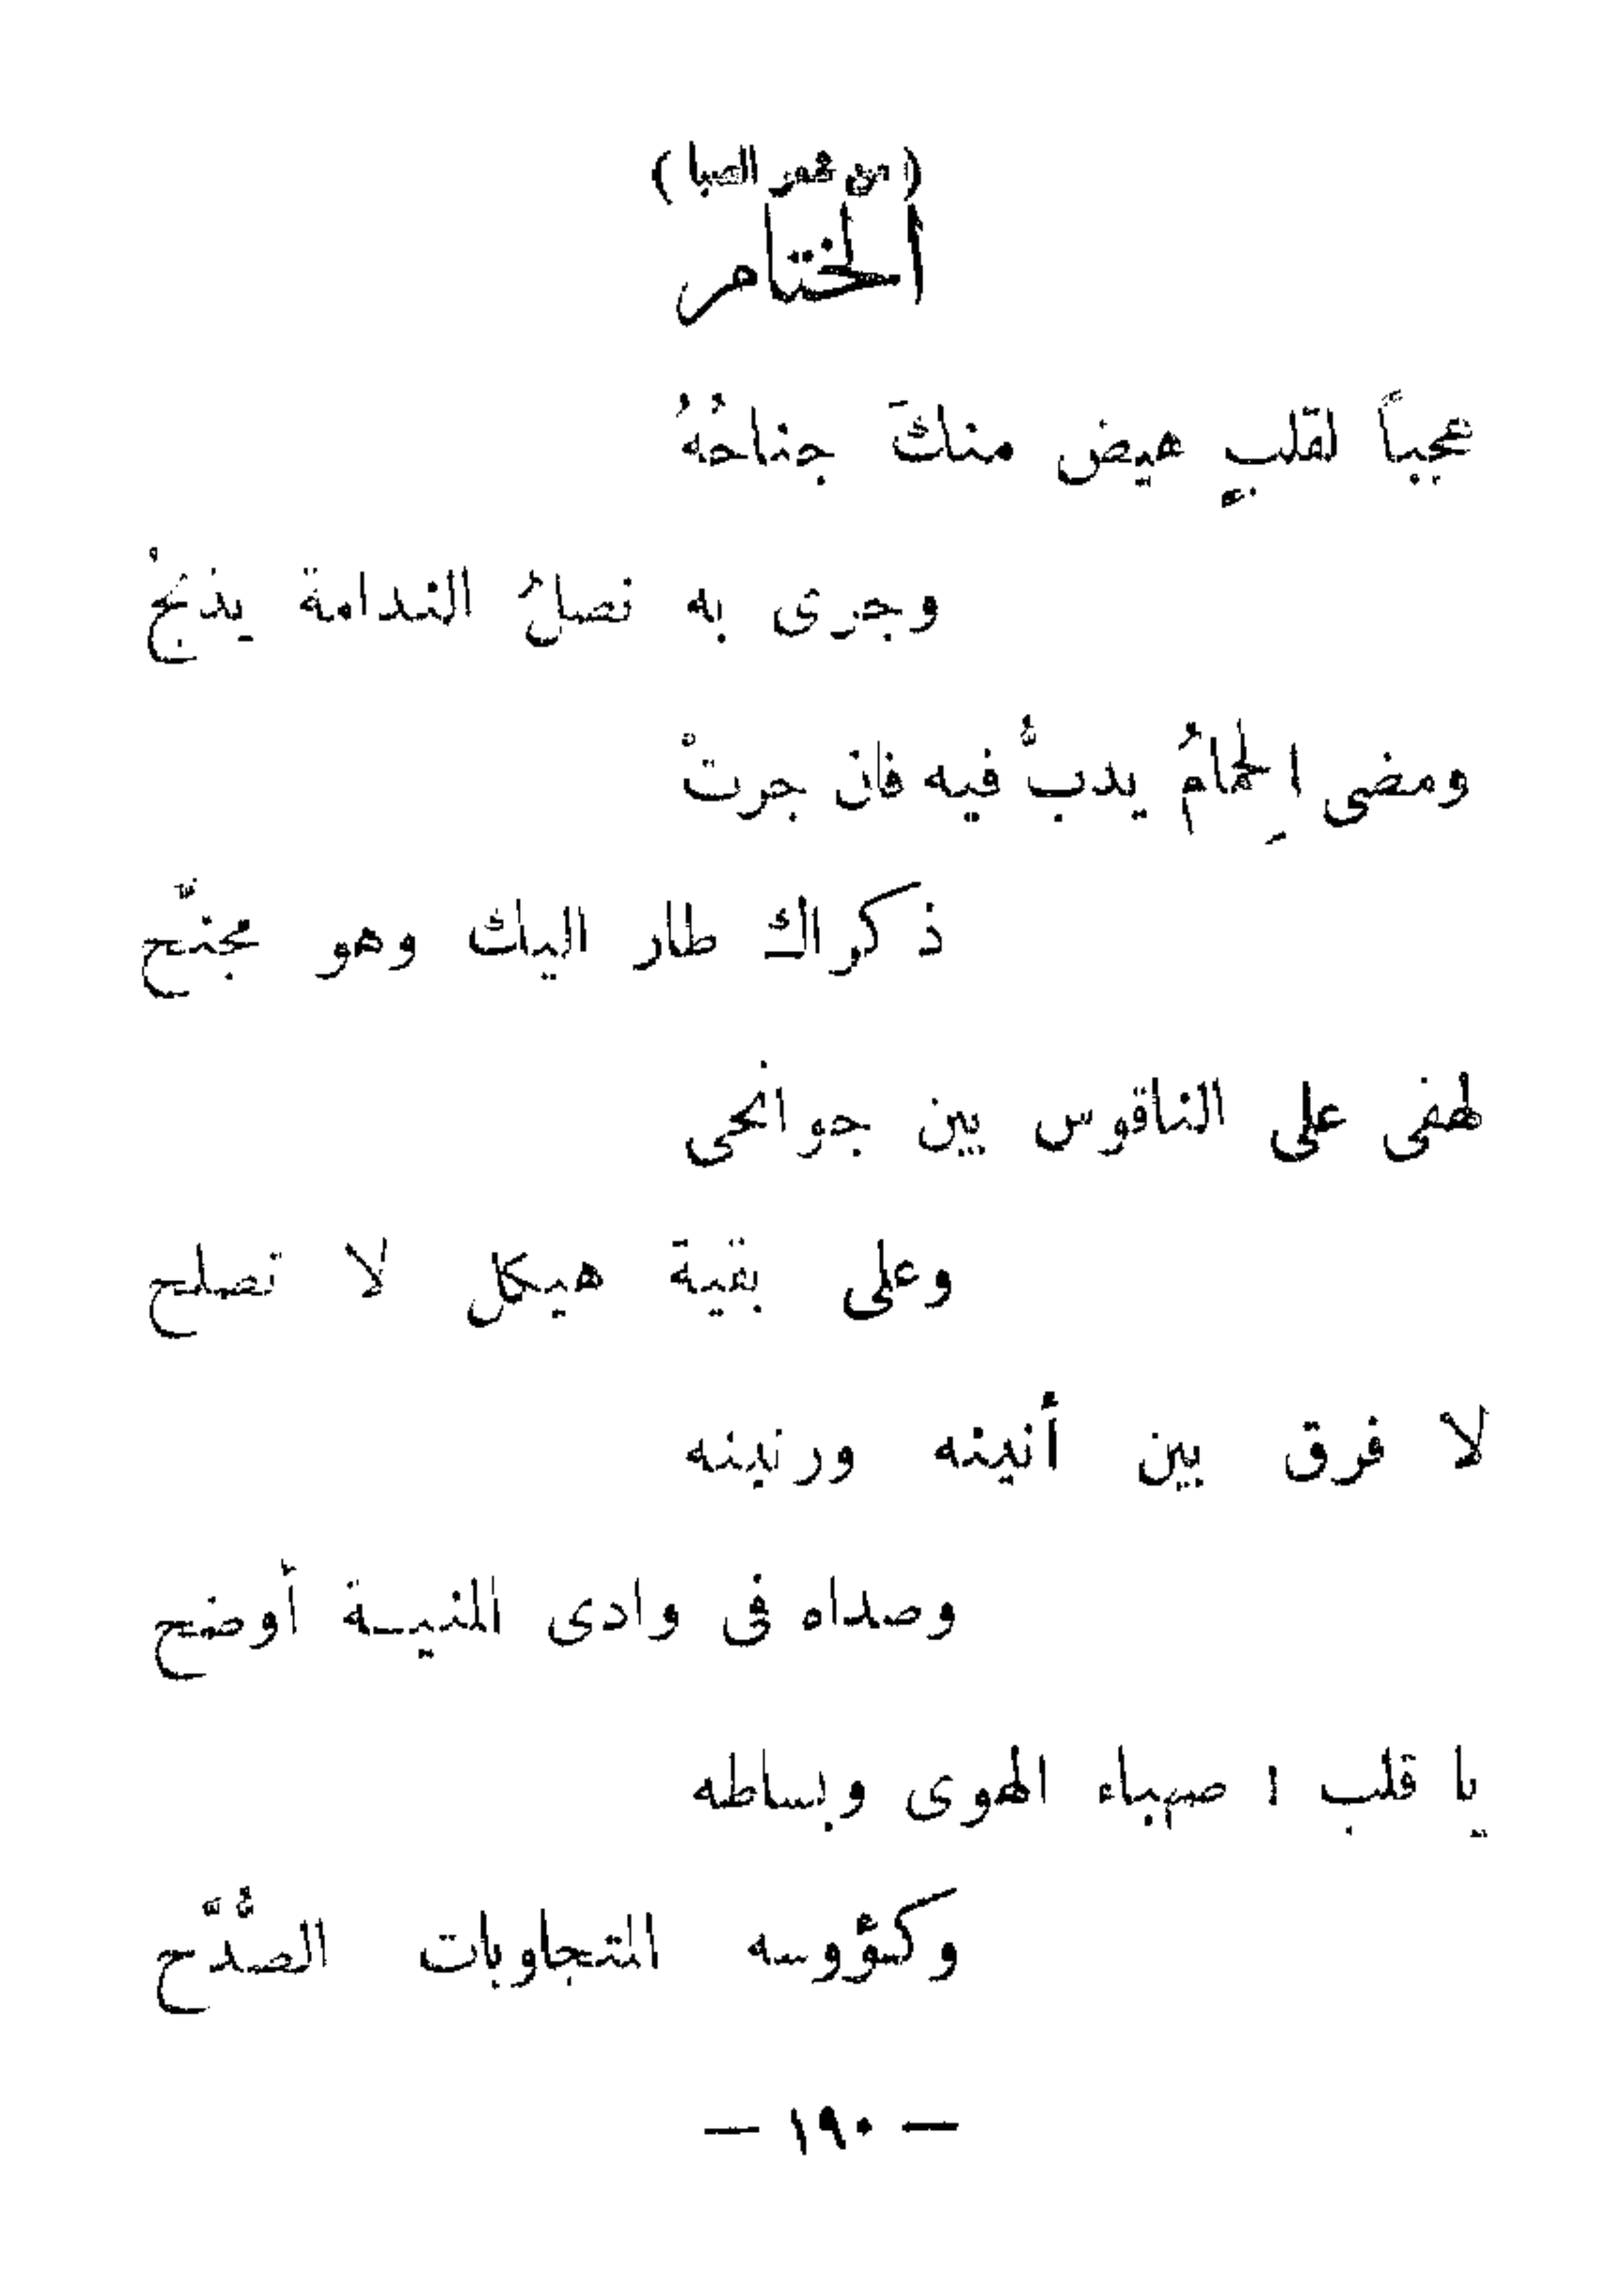 (من شعر الصبا)
الختام
عجباً لقلبٍ هيض منكَ جناحُهُ
وجرى به نصلُ الندامة يذبحْ
ومضى الحِمامُ يدبُّ فيه فان جرتْ
ذكراك طار اليك وهو مجنّح
لهفى على الناقوس بين جوانحى
وعلى بقية هيكل لا تصلح
لا فرق بين أنينه ورنينه
وصداه فى وادى المنيـة أوضح
يا قلب ! صهباء الهوى وبساطه
وكئووسه المتجاوبات الصُّدَّح
— ١٩٠ —